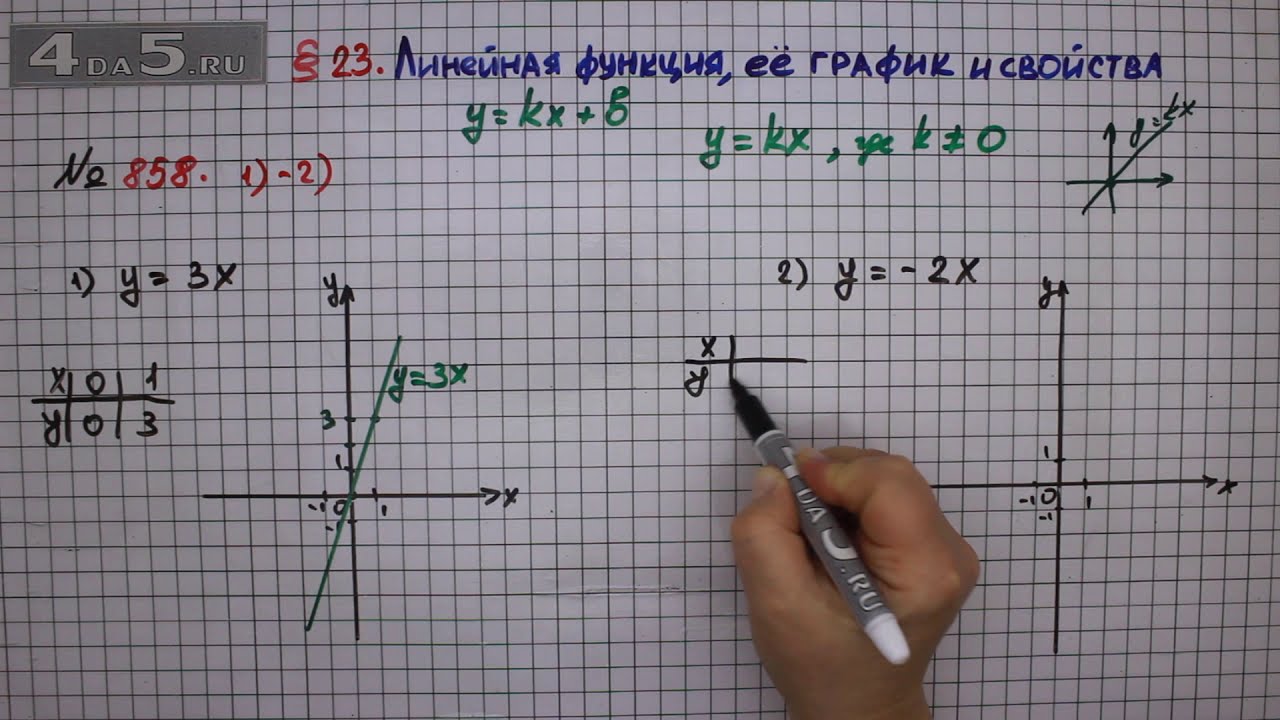 4DA5.RU
§ 23. Линейная функция, её график и свойства
y = kx + b
y = kx , где k ≠ 0
y = kx
№ 858. 1) - 2)
1) y = 3x
2) y = -2x
y
y
x | 0 | 1
y | 0 | 3
y = 3x
x
y
3
1
-1 0 1 x
-1
1
-1 0 1 x
-1
4DA5.RU